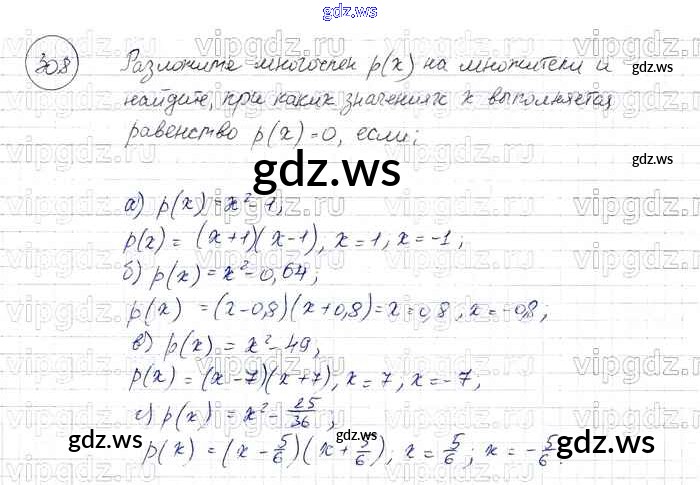 gdz.ws
308 Разложите многочлен p(x) на множители и
найдите, при каких значениях x выполняется
равенство p(x)=0, если;
gdz.ws
а) p(x) = x² - 1;
p(x) = (x+1)(x-1), x = 1, x = -1;
б) p(x) = x² - 0,64;
p(x) = (x-0,8)(x+0,8) = x = 0,8, x = -0,8;
в) p(x) = x² - 49;
p(x) = (x-7)(x+7), x = 7, x = -7;
г) p(x) = x² - 25/36;
p(x) = (x - 5/6)(x + 5/6); x = 5/6; x = - 5/6.
gdz.ws
gdz.ws
gdz.ws
gdz.ws
vipgdz